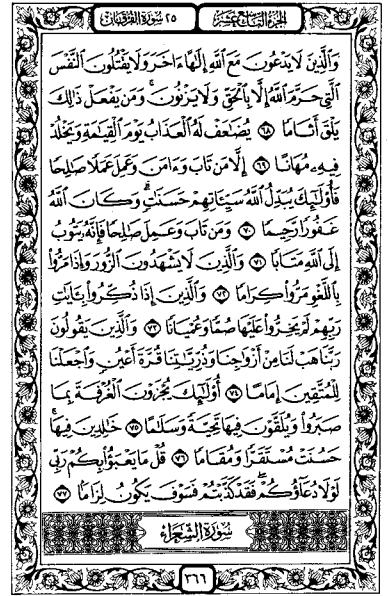 الجزء التاسع عشر
٢٥ سورة الفرقان
وَالَّذِينَ لَا يَدْعُونَ مَعَ اللَّهِ إِلَٰهًا ءَاخَرَ وَلَا يَقْتُلُونَ النَّفْسَ
الَّتِي حَرَّمَ اللَّهُ إِلَّا بِالْحَقِّ وَلَا يَزْنُونَ ۚ وَمَن يَفْعَلْ ذَٰلِكَ
يَلْقَ أَثَامًا ٦٨ يُضَاعَفْ لَهُ الْعَذَابُ يَوْمَ الْقِيَامَةِ وَيَخْلُدْ
فِيهِ مُهَانًا ٦٩ إِلَّا مَن تَابَ وَءَامَنَ وَعَمِلَ عَمَلًا صَالِحًا
فَأُولَٰئِكَ يُبَدِّلُ اللَّهُ سَيِّئَاتِهِمْ حَسَنَاتٍ ۗ وَكَانَ اللَّهُ
غَفُورًا رَّحِيمًا ٧٠ وَمَن تَابَ وَعَمِلَ صَالِحًا فَإِنَّهُ يَتُوبُ
إِلَى اللَّهِ مَتَابًا ٧١ وَالَّذِينَ لَا يَشْهَدُونَ الزُّورَ وَإِذَا مَرُّوا
بِاللَّغْوِ مَرُّوا كِرَامًا ٧٢ وَالَّذِينَ إِذَا ذُكِّرُوا بِـَٔايَاتِ
رَبِّهِمْ لَمْ يَخِرُّوا عَلَيْهَا صُمًّا وَعُمْيَانًا ٧٣ وَالَّذِينَ يَقُولُونَ
رَبَّنَا هَبْ لَنَا مِنْ أَزْوَاجِنَا وَذُرِّيَّاتِنَا قُرَّةَ أَعْيُنٍ وَاجْعَلْنَا
لِلْمُتَّقِينَ إِمَامًا ٧٤ أُولَٰئِكَ يُجْزَوْنَ الْغُرْفَةَ بِمَا
صَبَرُوا وَيُلَقَّوْنَ فِيهَا تَحِيَّةً وَسَلَامًا ٧٥ خَالِدِينَ فِيهَا ۚ
حَسُنَتْ مُسْتَقَرًّا وَمُقَامًا ٧٦ قُلْ مَا يَعْبَؤُا بِكُمْ رَبِّي
لَوْلَا دُعَاؤُكُمْ ۖ فَقَدْ كَذَّبْتُمْ فَسَوْفَ يَكُونُ لِزَامًا ٧٧
سورة الشعراء
٣٦٦